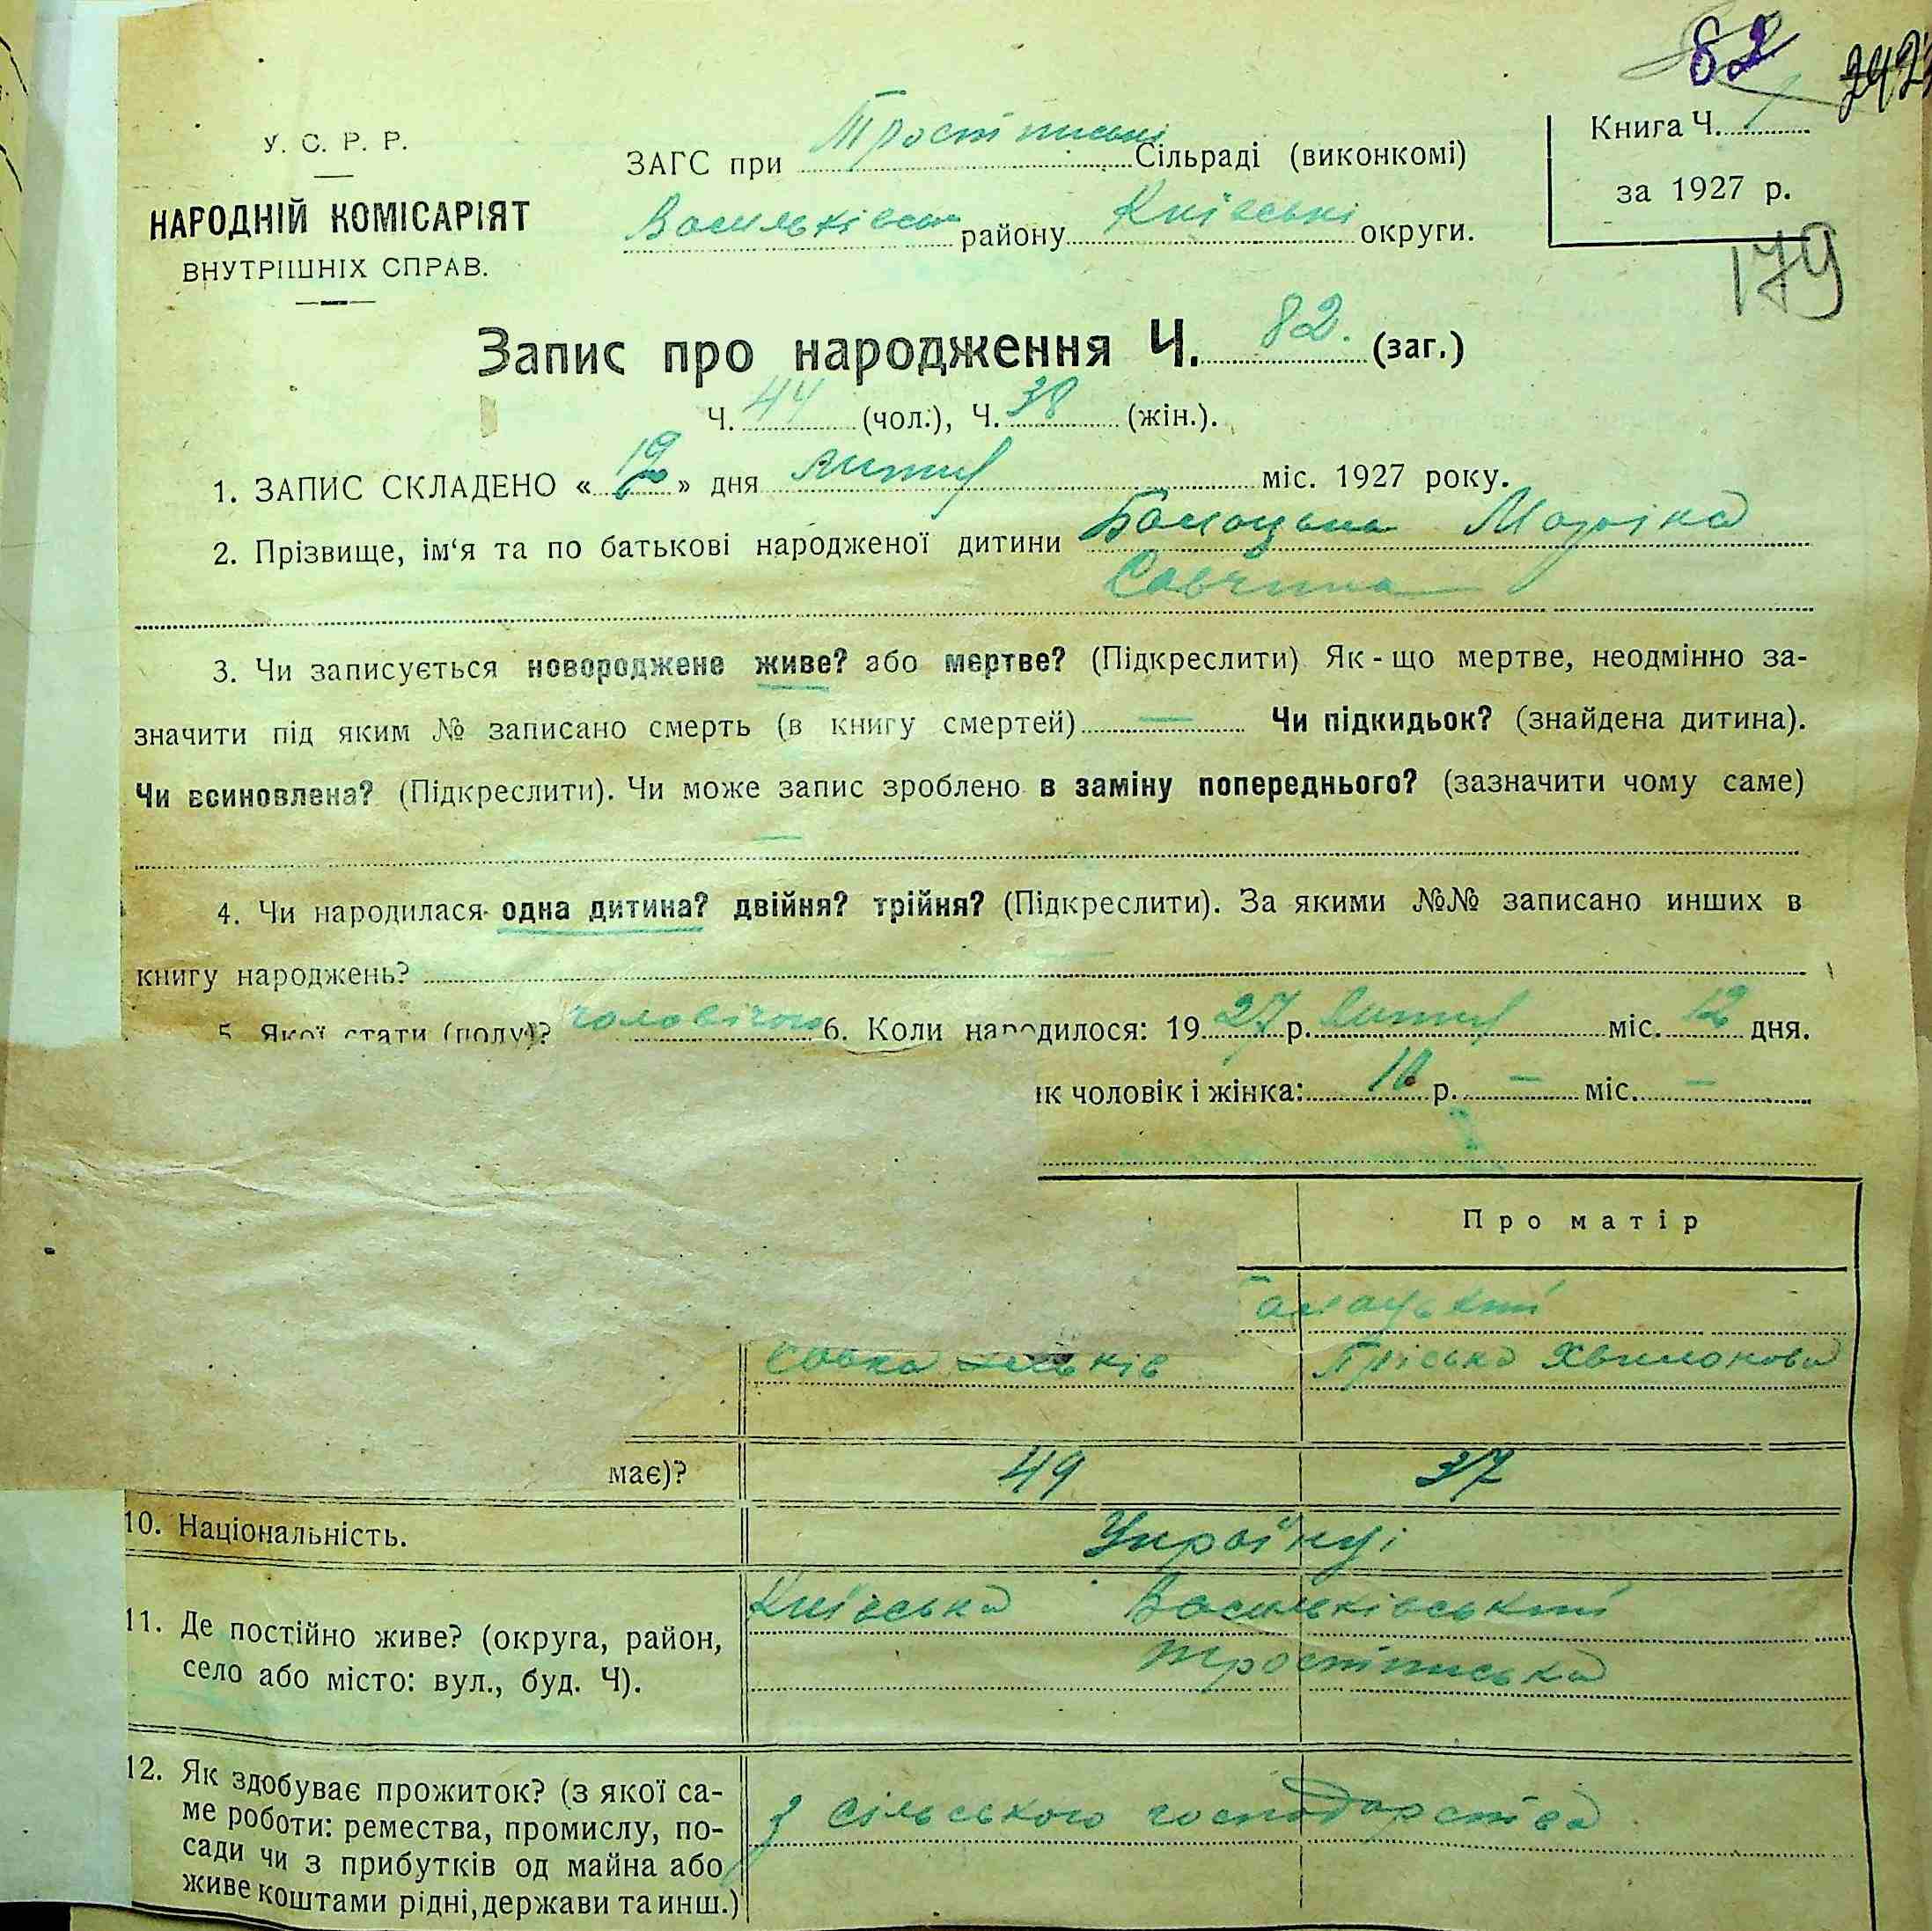 82
У. С. Р. Р.
НАРОДНІЙ КОМІСАРІЯТ
ВНУТРІШНІХ СПРАВ.
ЗАГС при Сільраді (виконкомі)
району Київські округи.
Книга Ч. 1
за 1927 р.
179
Запис про народження Ч. 82. (заг.)
Ч. 44 (чол.), Ч. 38 (жін.).
1. ЗАПИС СКЛАДЕНО « » дня міс. 1927 року.
2. Прізвище, ім‘я та по батькові народженої дитини
3. Чи записується новороджене живе? або мертве? (Підкреслити) Як-що мертве, неодмінно за-
значити під яким № записано смерть (в книгу смертей) — Чи підкидьок? (знайдена дитина).
Чи всиновлена? (Підкреслити). Чи може запис зроблено в заміну попереднього? (зазначити чому саме)
—
4. Чи народилася одна дитина? двійня? трійня? (Підкреслити). За якими №№ записано инших в
книгу народжень? —
5. Якої стати (полу)? 6. Коли народилося: 19 27 р. міс. 12 дня.
як чоловік і жінка: р. — міс. —
Про матір
має)? 49 37
10. Національність. Українці
11. Де постійно живе? (округа, район, Київська Васильківський
село або місто: вул., буд. Ч).
12. Як здобуває прожиток? (з якої са-
ме роботи: ремества, промислу, по- з сільського господарства
сади чи з прибутків од майна або
живе коштами рідні, держави та инш.)